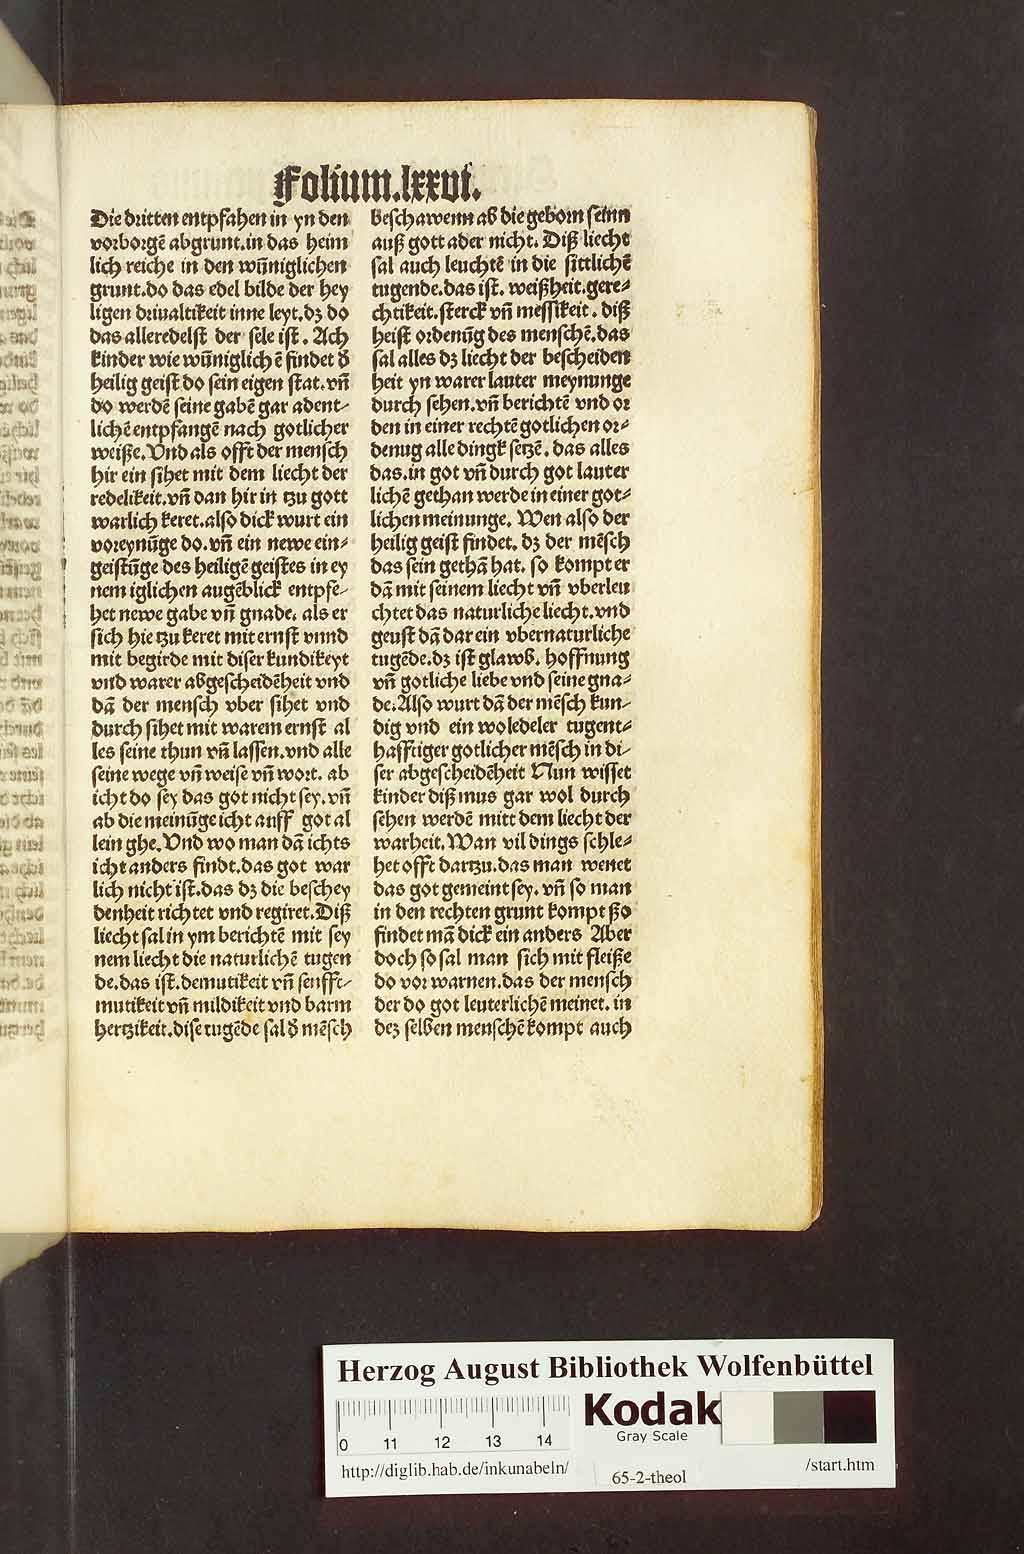 Folium.lxxvi.
Die dritten entpfahen in yn den
vorborgē abgrunt.in das heim
lich reiche in den wūniglichen
grunt.do das edel bilde der hey
ligen driualtikeit inne leyt.dz do
das alleredelst der sele ist. Ach
kinder wie wūniglichē findet d̄
heilig geist do sein eigen stat.vn̄
do werdē seine gabē gar adent-
lichē entpfangē nach gotlicher
weiße.Vnd als offt der mensch
hir ein sihet mit dem liecht der
redelikeit.vn̄ dan hir in tzu gott
warlich keret.also dick wurt ein
voreynūge do.vn̄ ein newe ein-
geistūge des heiligē geistes in ey
nem iglichen augēblick entpfe-
het newe gabe vn̄ gnade. als er
sich hie tzu keret mit ernst vnnd
mit begirde mit diser kundikeyt
vnd warer abgescheidēheit vnd
dā der mensch vber sihet vnd
durch sihet mit warem ernst al
les seine thun vn̄ lassen.vnd alle
seine wege vn̄ weise vn̄ wort. ab
icht do sey das got nicht sey.vn̄
ab die meinūge icht auff got al
lein ghe.Vnd wo man dā ichts
icht anders findt.das got war
lich nicht ist.das dz die beschey
denheit richtet vnd regiret.Diß
liecht sal in ym berichtē mit sey
nem liecht die naturlichē tugen
de.das ist.demutikeit vn̄ senfft-
mutikeit vn̄ mildikeit vnd barm
hertzikeit.dise tugēde sal d̄ mēsch
beschawenn ab die geborn seinn
auß gott ader nicht. Diß liecht
sal auch leuchtē in die sittlichē
tugende.das ist. weißheit.gere-
chtikeit.sterck vn̄ messikeit. diß
heist ordenūg des menschē.das
sal alles dz liecht der bescheiden
heit yn warer lauter meynunge
durch sehen.vn̄ berichtē vnd or
den in einer rechtē gotlichen or-
denug alle dingk setzē. das alles
das.in got vn̄ durch got lauter
lichē gethan werde in einer got-
lichen meinunge. Wen also der
heilig geist findet. dz der mēsch
das sein gethā hat. so kompt er
dā mit seinem liecht vn̄ vberleu
chtet das naturliche liecht.vnd
geust dā dar ein vbernaturliche
tugēde.dz ist glawb. hoffnung
vn̄ gotliche liebe vnd seine gna-
de.Also wurt dā der mēsch kun-
dig vnd ein woledeler tugent-
hafftiger gotlicher mēsch in di-
ser abgescheidēheit Nun wisset
kinder diß mus gar wol durch
sehen werdē mitt dem liecht der
warheit.Wan vil dings schle-
het offt dartzu.das man wenet
das got gemeint sey. vn̄ so man
in den rechten grunt kompt ßo
findet mā dick ein anders Aber
doch so sal man sich mit fleiße
do vor warnen.das der mensch
der do got leuterlichē meinet. in
dez selben menschē kompt auch
Herzog August Bibliothek Wolfenbüttel
Kodak
Gray Scale
0 11 12 13 14
http://diglib.hab.de/inkunabeln/
65-2-theol
/start.htm